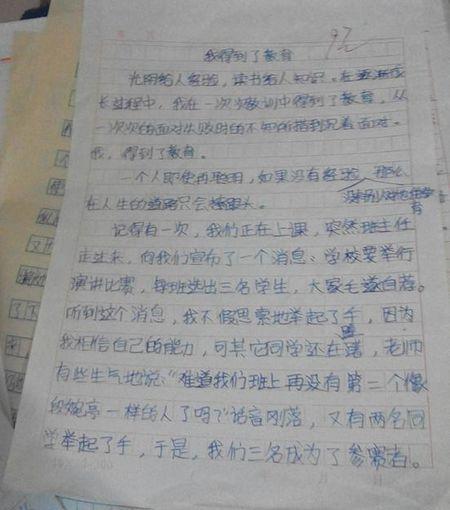 92
我得到了教育
光阴给人经验，读书给人知识。在
长过程中，我在一次次教训中得到了教育，从
一次次的面对失败时的不知所措到沉着面对。
我，得到了教育。
一个人即使再聪明，如果没有经验，那么
在人生的道路只会
育
记得有一次，我们正在上课，突然班主任
走进来，向我们宣布了一个消息：学校要举行
演讲比赛，每班选出三名学生，大家毛遂自荐。
听到这个消息，我不假思索地举起了手，因为
我相信自己的能力，可其它同学还在踌躇，老师
有些生气地说：“难道我们班上再没有第二个像
段婉亭一样的人了吗？”话音刚落，又有两名同
学举起了手，于是，我们三名成为了参赛者。